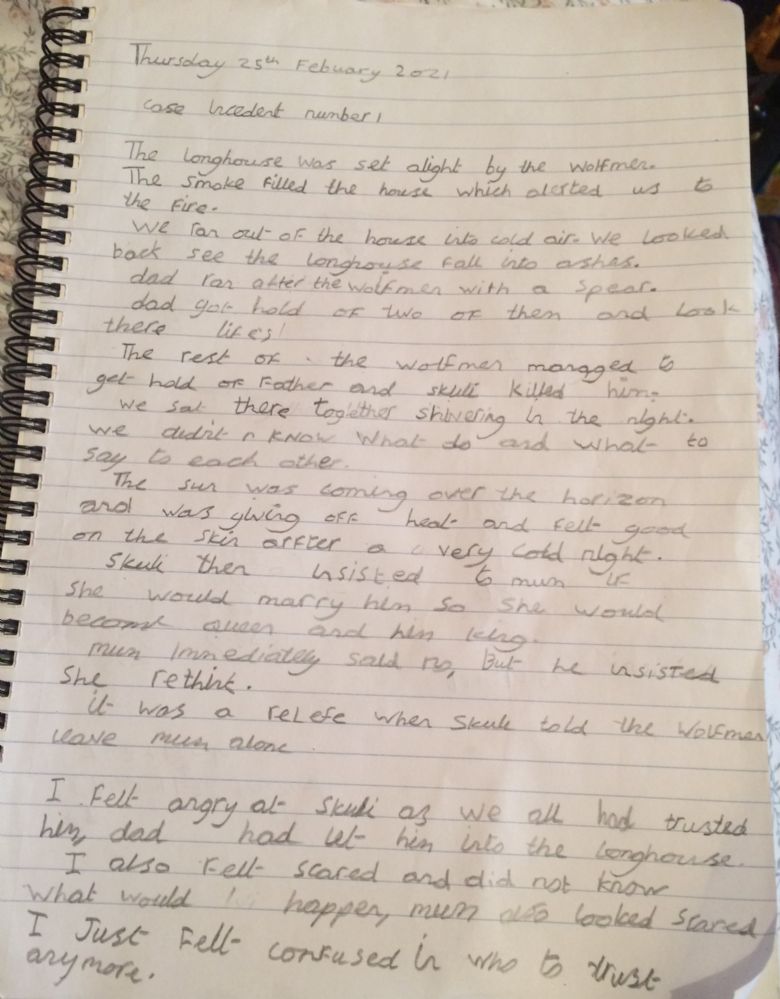 Thursday 25th Febuary 2021
case Incedent number 1
The longhouse was set alight by the wolfmen.
The smoke filled the house which alerted us to
the fire.
we ran out of the house into cold air. We looked
back see the longhouse fall into ashes.
dad ran after the wolfmen with a spear.
dad got hold of two of them and took
there lifes!
The rest of the wolfmen mangged to
get hold of Father and skuli killed him.
we sat there together shivering in the night.
we didn't n know what do and what to
say to each other.
The sun was coming over the horizon
and was giving off heat and felt good
on the skin arfter a very cold night.
Skuli then insisted to mum if
she would marry him so she would
become queen and him king.
mum immediately said no, But he insisted
She rethink.
it was a relefe when Skuli told the Wolfmen
leave mum alone
I felt angry at Skuli as we all had trusted
him, dad had let him into the longhouse.
I also felt scared and did not know
what would happen, mum also looked scared
I Just felt confused in who to trust
anymore.